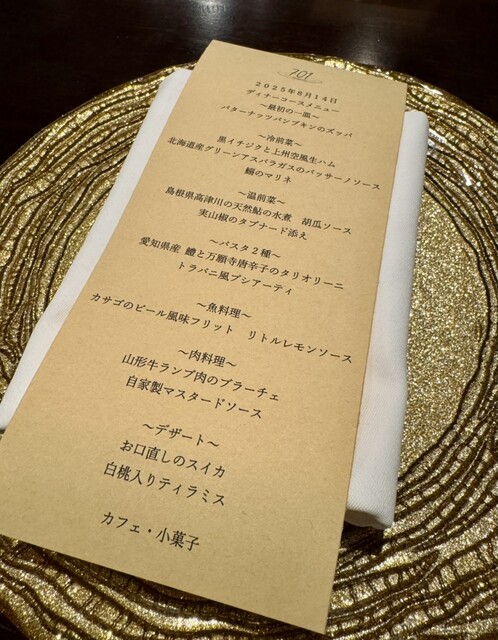 701
2025年8月14日
ディナーコースメニュー
～最初の一皿～
バターナッツパンプキンのズッパ
～冷前菜～
黒イチジクと上州空風生ハム
北海道産グリーンアスパラガスのバッサーノソース
鰯のマリネ
～温前菜～
島根県高津川の天然鮎の水煮 胡瓜ソース
実山椒のタプナード添え
～パスタ2種～
愛知県産 鱧と万願寺唐辛子のタリオリーニ
トラパニ風ブシアーティ
～魚料理～
カサゴのビール風味フリット リトルレモンソース
～肉料理～
山形牛ランプ肉のブラーチェ
自家製マスタードソース
～デザート～
お口直しのスイカ
白桃入りティラミス
カフェ・小菓子